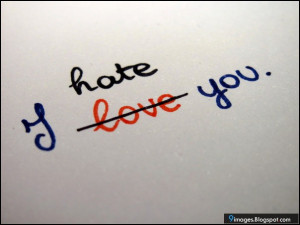 hate
I love you.
9images.Blogspot.com